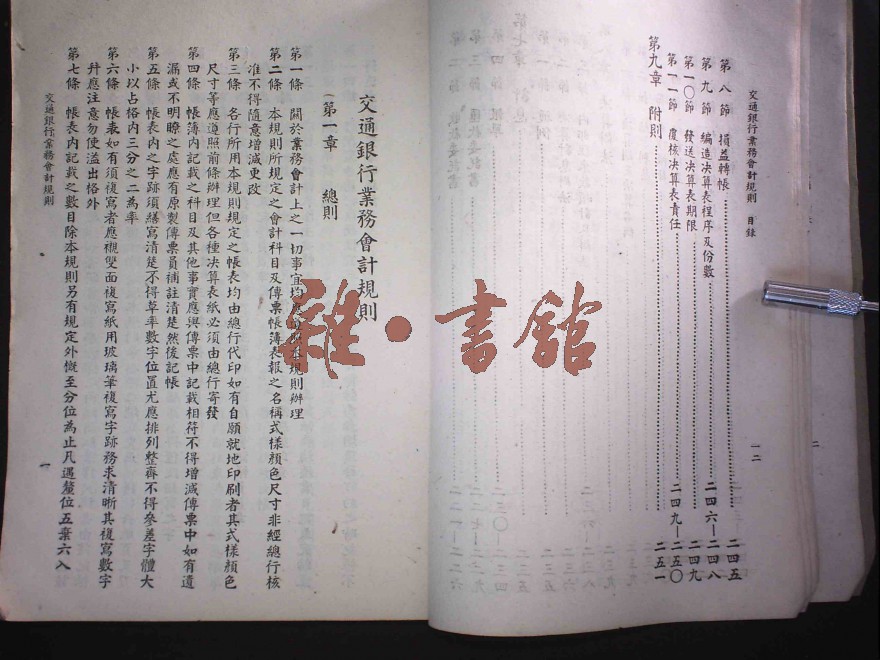 交通銀行業務會計規則 目錄
一二
第八節 損益轉帳 二四五
第九節 編造決算表程序及份數 二四六—二四八
第一〇節 發送決算表期限 二四九
第一一節 覆核決算表責任 二四九—二五〇
第九章 附則 二五一
交通銀行業務會計規則
(第一章 總則
第一條 關於業務會計上之一切事宜均應遵照本規則辦理
第二條 本規則所規定之會計科目及傳票帳簿表報之名稱式樣顏色尺寸非經總行核
准不得隨意增減更改
第三條 各行所用本規則規定之帳表均由總行代印如有自願就地印刷者其式樣顏色
尺寸等應遵照前條辦理但各種決算表紙必須由總行寄發
第四條 帳簿內記載之科目及其他事實應與傳票中記載相符不得增減傳票中如有遺
漏或不明瞭之處應有原製傳票員補註清楚然後記帳
第五條 帳表內之字跡須繕寫清楚不得草率數字位置尤應排列整齊不得參差字體大
小以占格內三分之二為率
第六條 帳表如有須複寫者應襯雙面複寫紙用玻璃筆複寫字跡務求清晰其複寫數字
幷應注意勿使溢出格外
第七條 帳表內記載之數目除本規則另有規定外慨至分位為止凡遇釐位五棄六入
交通銀行業務會計規則
一
雜·書館